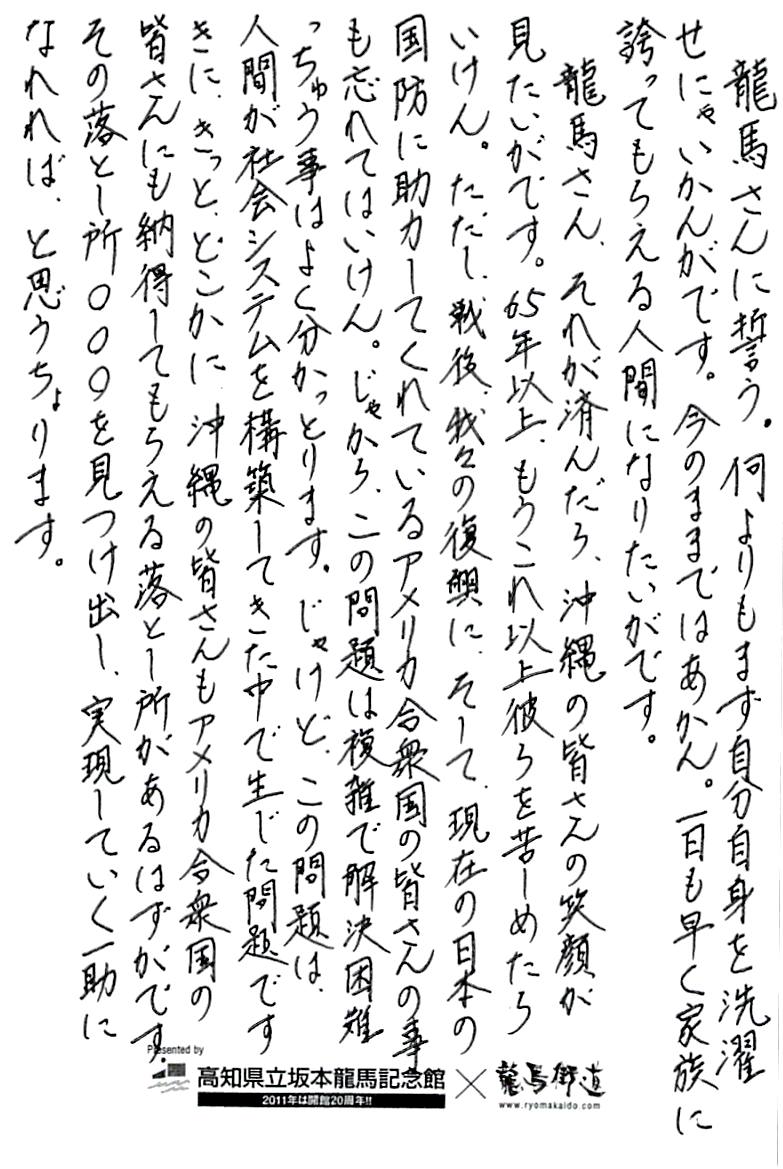 龍馬さんに誓う。何よりもまず自分自身を洗濯
せにゃいかんがです。今のままではあかん。一日も早く家族に
誇ってもらえる人間になりたいがです。
龍馬さん、それが済んだら、沖縄の皆さんの笑顔が
見たいがです。65年以上、もうこれ以上彼らを苦しめたら
いけん。ただし、戦後、我々の復興に、そして、現在の日本の
国防に助力してくれているアメリカ合衆国の皆さんの事
も忘れてはいけん。じゃから、この問題は複雑で解決困難
っちゅう事はよく分かっとります。じゃけど、この問題は、
人間が社会システムを構築してきた中で生じた問題です
きに、きっと、どこかに、沖縄の皆さんもアメリカ合衆国の
皆さんにも納得してもらえる落とし所があるはずがです。
その落とし所〇〇〇を見つけ出し、実現していく一助に
なれれば、と思うちょります。
Presented by
高知県立坂本龍馬記念館 × 龍馬街道
2011年は開館20周年!!
www.ryomakaido.com